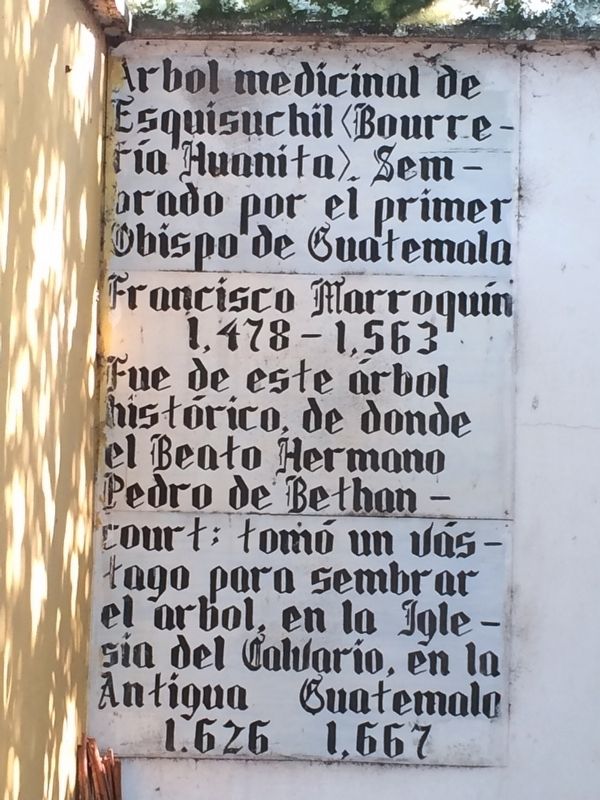 Arbol medicinal de
Esquisuchil (Bourre-
ría Huanita). Sem-
brado por el primer
Obispo de Guatemala
Francisco Marroquín
1,478 – 1,563
Fue de este árbol
histórico, de donde
el Beato Hermano
Pedro de Bethan-
court; tomó un vás-
tago para sembrar
el arbol, en la Igle-
sia del Calvario, en la
Antigua Guatemala
1.626 1,667